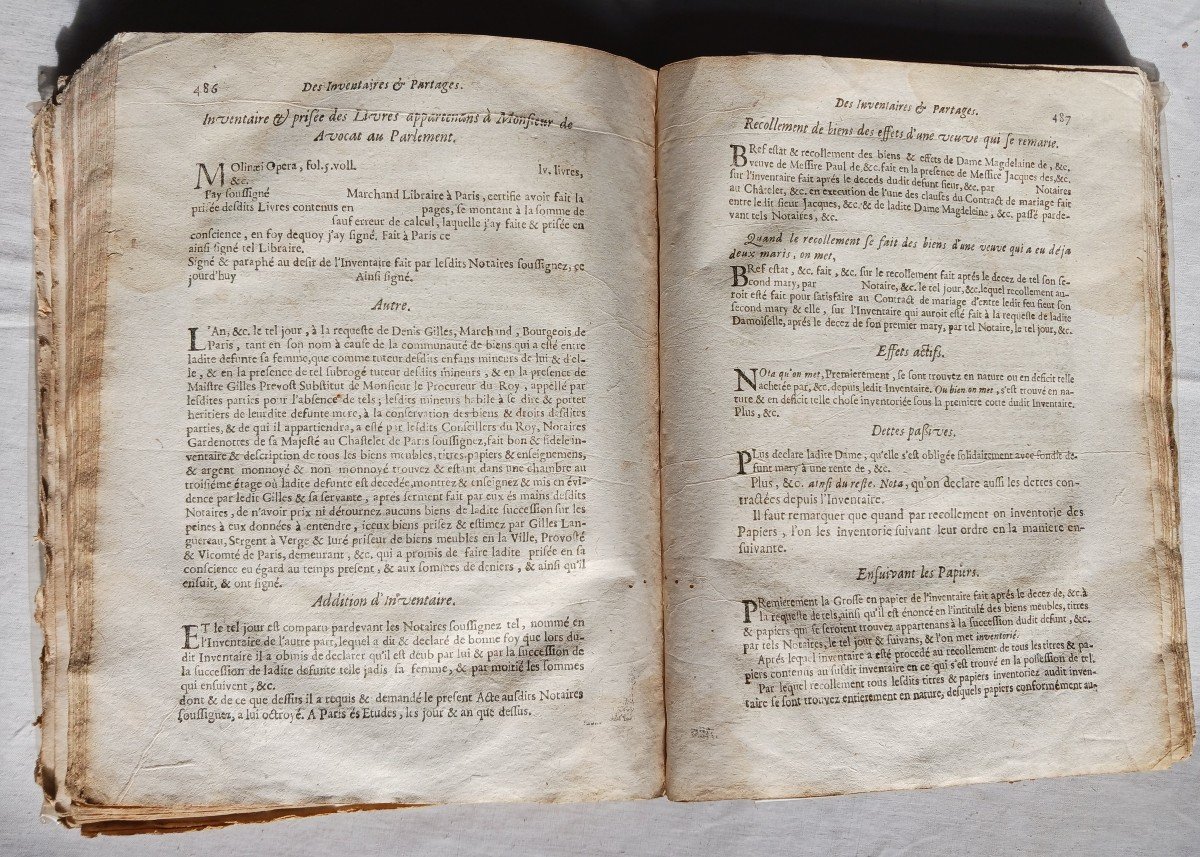 486
Des Inventaires & Partages.
Inventaire & prisée des Livres appartenans à Monsieur de
Avocat au Parlement.
MOlinæi Opera, fol. 5. voll. lv. livres,
&c.
J'ay soussigné Marchand Libraire à Paris, certifie avoir fait la
prisée desdits Livres contenus en pages, se montant à la somme de
sauf erreur de calcul, laquelle j'ay faite & prisée en
conscience, en foy dequoy j'ay signé. Fait à Paris ce
ainsi signé tel Libraire.
Signé & paraphé au desir de l'Inventaire fait par lesdits Notaires soussignez, ce
jourd'huy Ainsi signé.
Autre.
L'An, &c. le tel jour, à la requeste de Denis Gilles, Marchand, Bourgeois de
Paris, tant en son nom à cause de la communauté de biens qui a esté entre
ladite defunte sa femme, que comme tuteur desdits enfans mineurs de lui & d'el-
le, & en la presence de tel subrogé tuteur desdits mineurs, & en la presence de
Maistre Gilles Prevost Substitut de Monsieur le Procureur du Roy, appellé par
lesdites parties pour l'absence de tels; lesdits mineurs habile à se dire & porter
heritiers de leurdite defunte mere, à la conservation des biens & droits desdites
parties, & de qui il appartiendra, a esté par lesdits Conseillers du Roy, Notaires
Gardenottes de sa Majesté au Chastelet de Paris soussignez, fait bon & fidele in-
ventaire & description de tous les biens meubles, titres, papiers & enseignemens,
& argent monnoyé & non monnoyé trouvez & estant dans une chambre au
troisiéme étage où ladite defunte est decedée, montrez & enseignez & mis en évi-
dence par ledit Gilles & sa servante, aprés serment fait par eux és mains desdits
Notaires, de n'avoir pris ni détourné aucuns biens de ladite succession sur les
peines à eux données à entendre, iceux biens prisez & estimez par Gilles Lan-
guereau, Sergent à Verge & Juré priseur de biens meubles en la Ville, Provosté
& Vicomté de Paris, demeurant, &c. qui a promis de faire ladite prisée en sa
conscience eu égard au temps present, & aux sommes de deniers, & ainsi qu'il
ensuit, & ont signé.
Addition d'Inventaire.
ET le tel jour est comparu pardevant les Notaires soussignez tel, nommé en
l'Inventaire de l'autre part, lequel a dit & declaré de bonne foy que lors du-
dit Inventaire il a obmis de declarer qu'il est deub par lui & par la succession de
la succession de ladite defunte telle jadis sa femme, & par moitié les sommes
qui ensuivent, &c.
dont & de ce que dessus il a requis & demandé le present Acte ausdits Notaires
soussignez, a lui octroyé. A Paris és Etudes, les jour & an que dessus.
Des Inventaires & Partages.
487
Recollement de biens des effets d'une veuve qui se remarie.
BRef estat & recollement des biens & effets de Dame Magdelaine de, &c.
veuve de Messire Paul de, &c. fait en la presence de Messire Jacques des, &c.
sur l'inventaire fait aprés le deceds dudit defunt sieur, &c. par Notaires
au Châtelet, &c. en execution de l'une des clauses du Contract de mariage fait
entre ledit sieur Jacques, &c. & de ladite Dame Magdeleine, &c. passé parde-
vant tels Notaires, &c.
Quand le recollement se fait des biens d'une veuve qui a eu déja
deux maris, on met,
BRef estat, &c. fait, &c. sur le recollement fait aprés le decez de tel son se-
cond mary, par Notaire, &c. le tel jour, &c. lequel recollement au-
roit esté fait pour satisfaire au Contract de mariage d'entre ledit feu sieut son
second mary & elle, sur l'Inventaire qui auroit esté fait à la requeste de ladite
Damoiselle, aprés le decez de son premier mary, par tel Notaire, le tel jour, &c.
Effets actifs.
NOta qu'on met, Premierement, se sont trouvez en nature ou en deficit telle
achetée par, &c. depuis ledit Inventaire. Ou bien on met, s'est trouvé en na-
ture & en deficit telle chose inventoriée sous la premiere cotte dudit Inventaire.
Plus, &c.
Dettes passives.
PLus declare ladite Dame, qu'elle s'est obligée solidairement avec sondit de-
funt mary à une rente de, &c.
Plus, &c. ainsi du reste. Nota, qu'on declare aussi les dettes con-
tractées depuis l'Inventaire.
Il faut remarquer que quand par recollement on inventorie des
Papiers, l'on les inventorie suivant leur ordre en la maniere en-
suivante.
Ensuivant les Papiers.
PRemierement la Grosse en papier de l'inventaire fait aprés le decez de, &c. à
la requeste de tels, ainsi qu'il est énoncé en l'intitulé des biens meubles, titres
& papiers qui se seroient trouvez appartenans à la succession dudit defunt, &c.
par tels Notaires, le tel jour & suivans, & l'on met inventorié.
Aprés lequel inventaire a esté procedé au recollement de tous les titres & pa-
piers contenus au susdit inventaire en ce qui s'est trouvé en la possession de tel.
Par lequel recollement tous lesdits titres & papiers inventoriez audit inven-
taire se sont trouvez entierement en nature, desquels papiers conformément au-